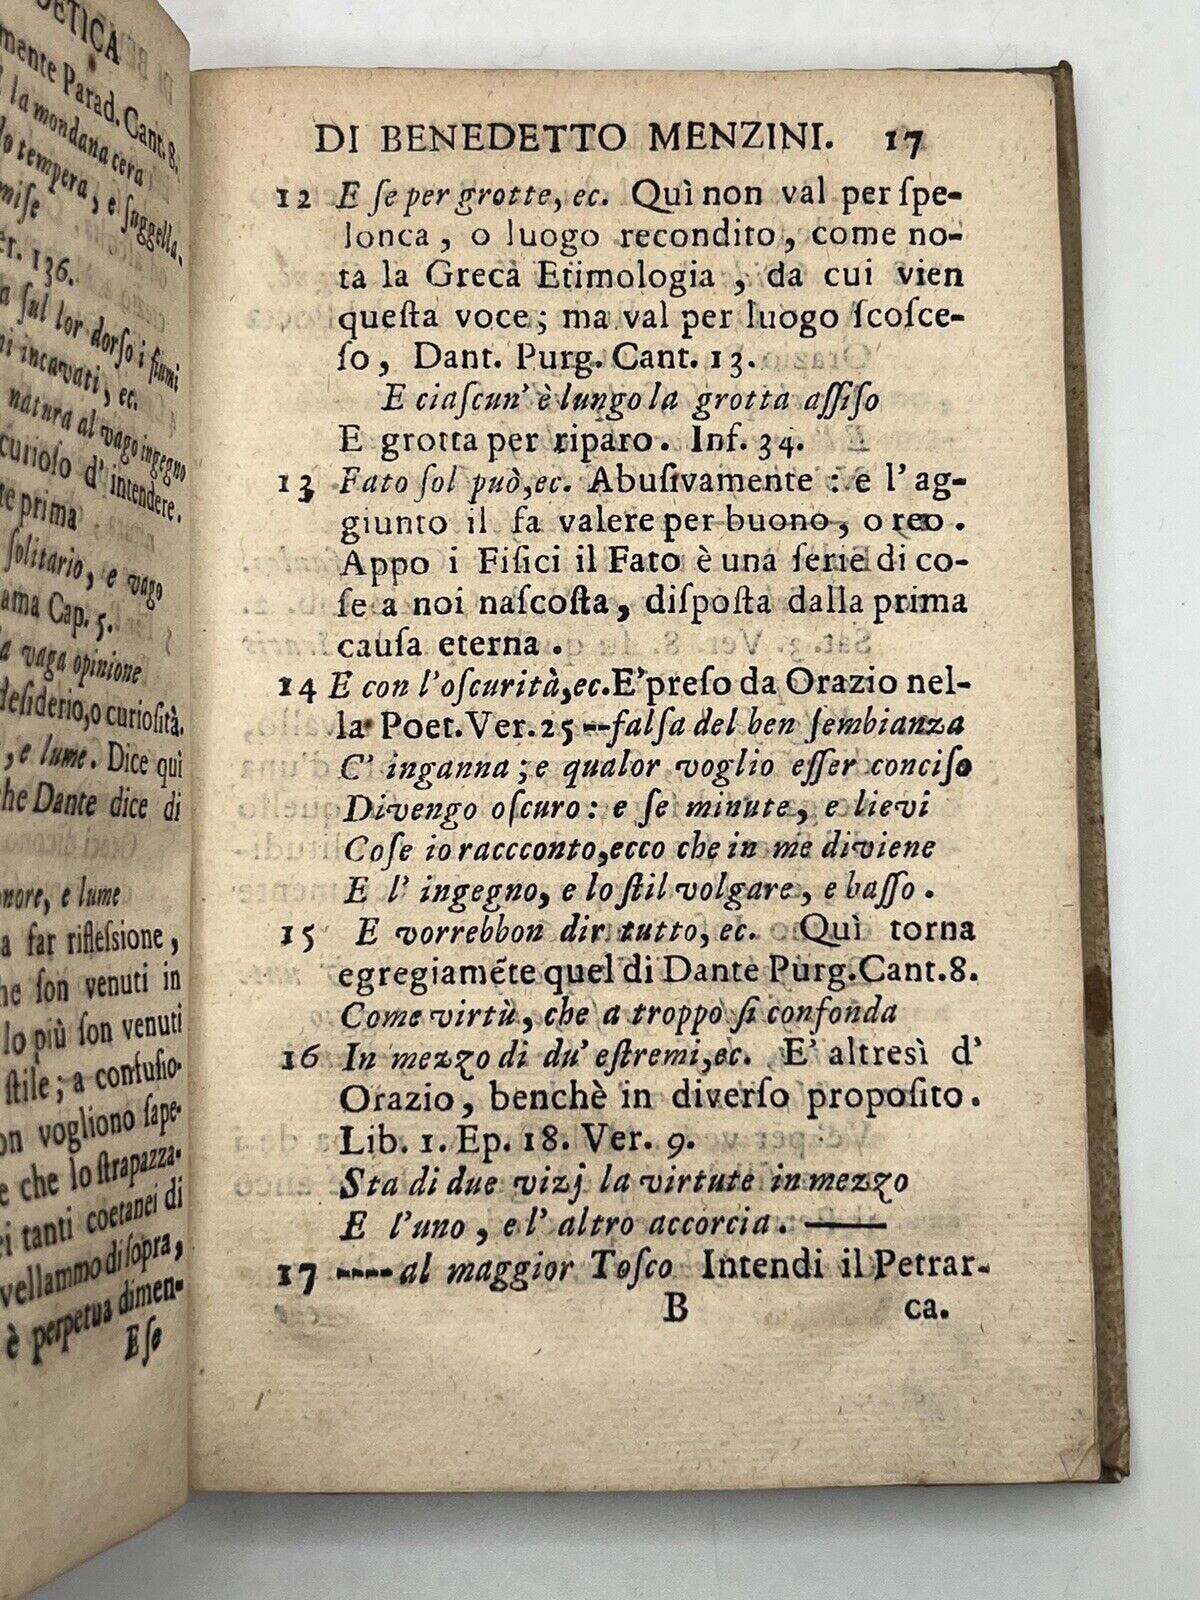 OETICA
mente Parad. Cant. 8.
la mondana cera
lo tempera, e ſuggella.
miſe
er. 136.
a ſul lor dorſo i fiumi
ni incavati, ec.
natura al vago ingegno
curioſo d'intendere.
te prima
ſolitario, e vago
ama Cap. 5.
a vaga opinione
deſiderio, o curioſità.
, e lume. Dice quì
he Dante dice di
nore, e lume
a far rifleſsione,
he ſon venuti in
lo più ſon venuti
ſtile; a confuſio-
on vogliono ſape-
e che lo ſtrapazza-
ei tanti coetanei di
vellammo di ſopra,
è perpetua dimen-
E ſe
DI BENEDETTO MENZINI. 17
12 E ſe per grotte, ec. Quì non val per ſpe-
lonca, o luogo recondito, come no-
ta la Greca Etimologia, da cui vien
queſta voce; ma val per luogo ſcoſce-
ſo, Dant. Purg. Cant. 13.
E ciaſcun' è lungo la grotta aſſiſo
E grotta per riparo. Inf. 34.
13 Fato ſol può, ec. Abuſivamente: e l'ag-
giunto il fa valere per buono, o reo.
Appo i Fiſici il Fato è una ſerie di co-
ſe a noi naſcoſta, diſpoſta dalla prima
cauſa eterna.
14 E con l'oſcurità, ec. E' preſo da Orazio nel-
la Poet. Ver. 25 -- falſa del ben ſembianza
C' inganna; e qualor voglio eſſer conciſo
Divengo oſcuro: e ſe minute, e lievi
Coſe io raccconto, ecco che in me diviene
E l' ingegno, e lo ſtil volgare, e baſſo.
15 E vorrebbon dir tutto, ec. Quì torna
egregiamẽte quel di Dante Purg. Cant. 8.
Come virtù, che a troppo ſi confonda
16 In mezzo di du' eſtremi, ec. E' altresì d'
Orazio, benchè in diverſo propoſito.
Lib. 1. Ep. 18. Ver. 9.
Sta di due vizj la virtute in mezzo
E l'uno, e l' altro accorcia. ——
17 ---- al maggior Toſco Intendi il Petrar-
B ca.